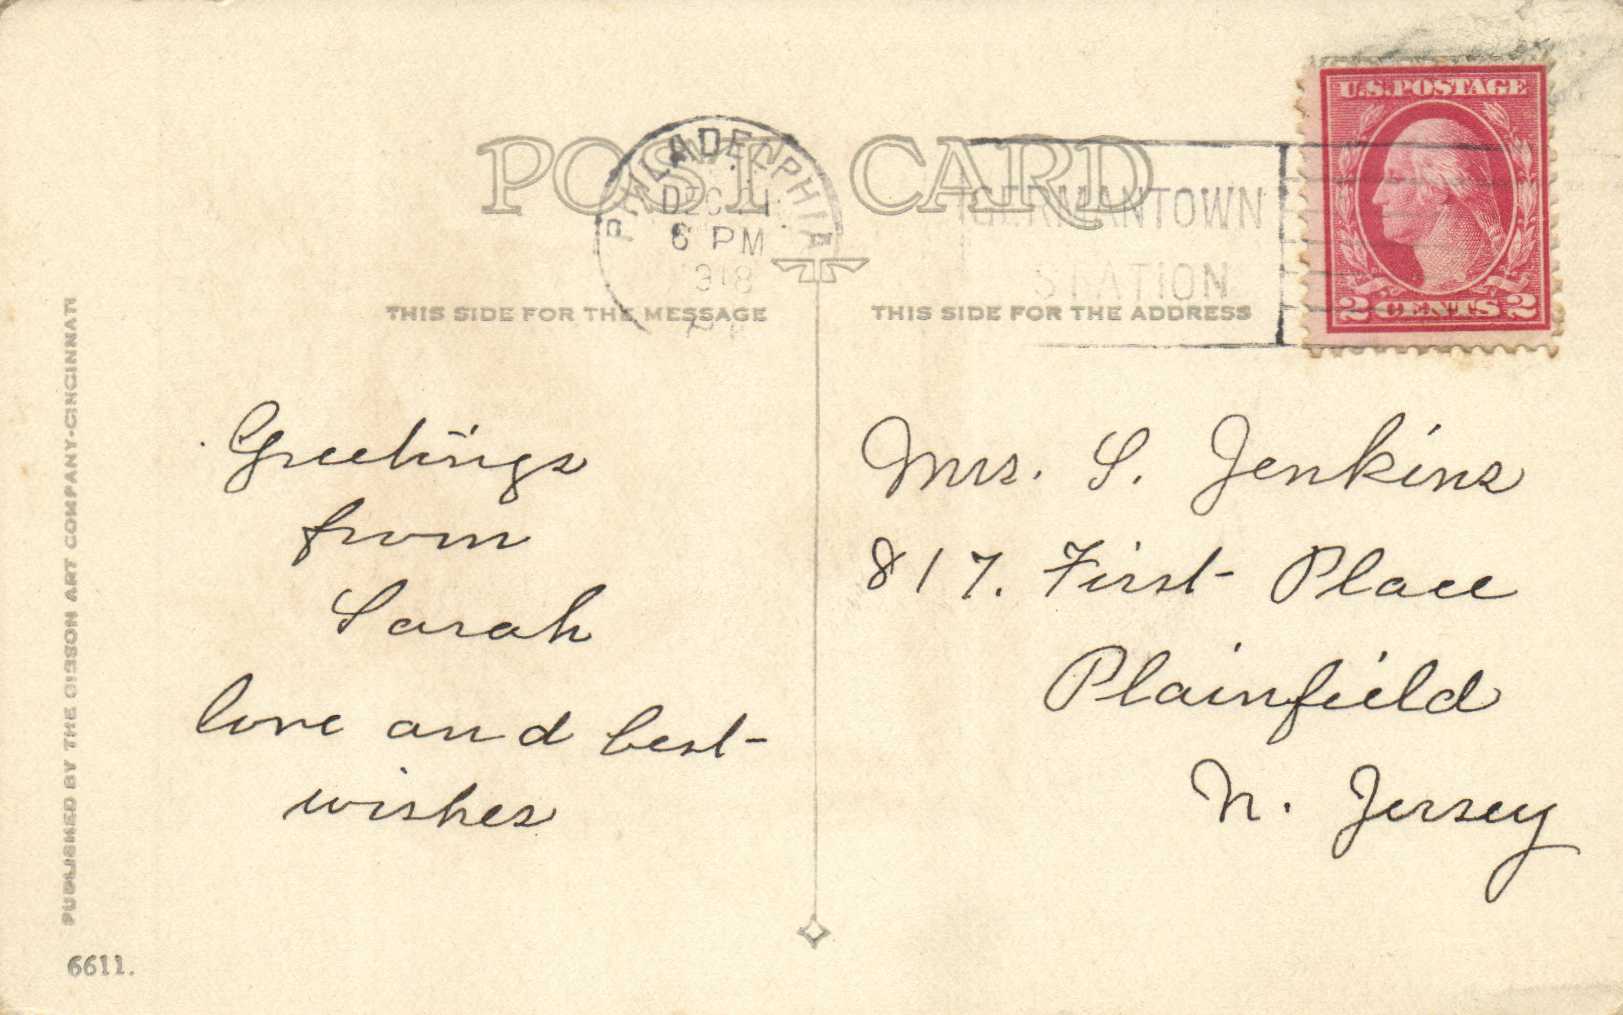 POST CARD
PHILADELPHIA
DEC 21
6 PM
1918
PA
GERMANTOWN
STATION
U.S. POSTAGE
2 CENTS 2
THIS SIDE FOR THE MESSAGE
THIS SIDE FOR THE ADDRESS
Greetings
from
Sarah
love and best
wishes
Mrs. S. Jenkins
817. First Place
Plainfield
N. Jersey
PUBLISHED BY THE GIBSON ART COMPANY-CINCINNATI
6611.